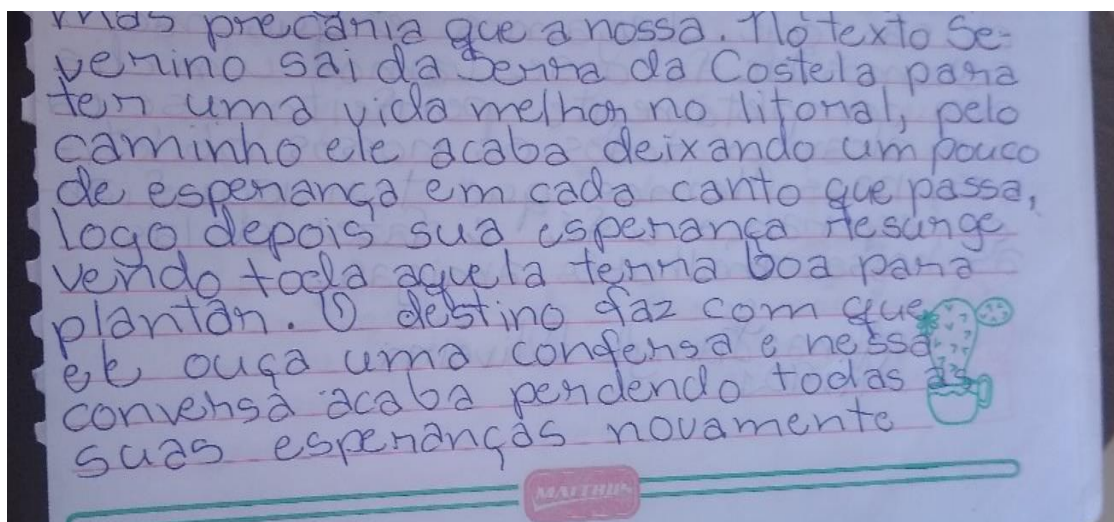 mas precária que a nossa. No texto Se-
verino sai da Serra da Costela para
ter uma vida melhor no litoral, pelo
caminho ele acaba deixando um pouco
de esperança em cada canto que passa,
logo depois sua esperança resurge
vendo toda aquela terra boa para
plantar. O destino faz com que
ele ouça uma confersa e nessa
conversa acaba perdendo todas as
suas esperanças novamente